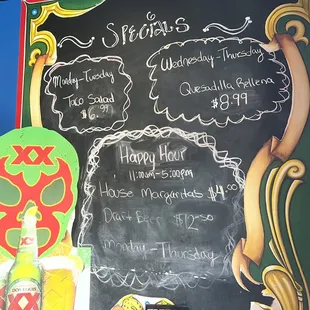 Specials
Monday-Tuesday
Taco Salad
$6.99
Wednesday-Thursday
Quesadilla Rellena
$8.99
Happy Hour
11:00am-5:00pm
House Margaritas $4.00
Draft Beer $2.50
Monday-Thursday
XX
XX